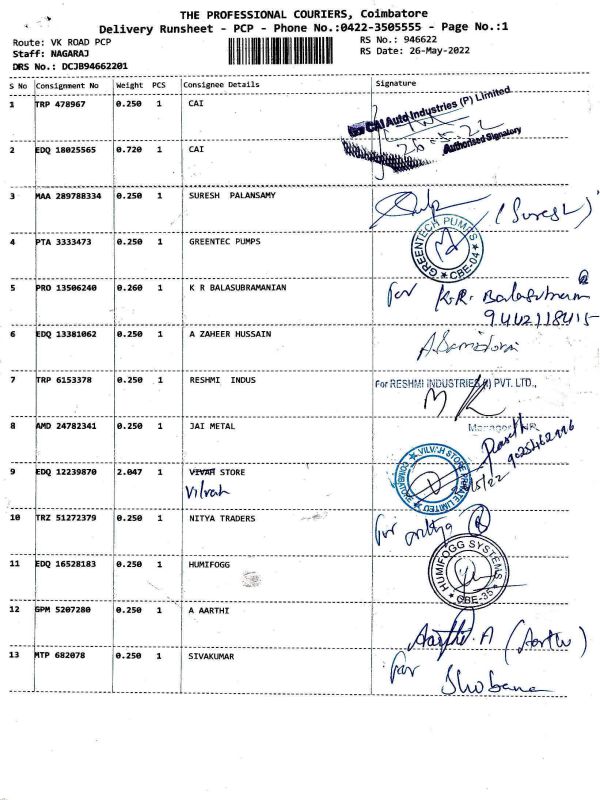 THE PROFESSIONAL COURIERS, Coimbatore
Delivery Runsheet - PCP - Phone No.:0422-3505555 - Page No.:1
Route: VK ROAD PCP RS No.: 946622
Staff: NAGARAJ RS Date: 26-May-2022
DRS No.: DCJB94662201
S No Consignment No Weight PCS Consignee Details Signature
1 TRP 478967 0.250 1 CAI
CAI Auto Industries (P) Limited
26-5-22
Authorised Signatory
2 EDQ 18025565 0.720 1 CAI
3 MAA 289788334 0.250 1 SURESH PALANSAMY
(Suresh)
4 PTA 3333473 0.250 1 GREENTEC PUMPS
GREENTECH PUMPS
* CBE-04 *
5 PRO 13506240 0.260 1 K R BALASUBRAMANIAN
For K.R. Balasubramani
9442118415
6 EDQ 13381062 0.250 1 A ZAHEER HUSSAIN
7 TRP 6153378 0.250 1 RESHMI INDUS
For RESHMI INDUSTRIES (I) PVT. LTD.,
Manager HR
8 AMD 24782341 0.250 1 JAI METAL
9 EDQ 12239870 2.047 1 VIVAH STORE
Vilvah
VILVAH STORE PRIVATE LIMITED
COIMBATORE
10 TRZ 51272379 0.250 1 NITYA TRADERS
For nithya
11 EDQ 16528183 0.250 1 HUMIFOGG
HUMIFOGG SYSTEMS
* CBE-35 *
12 GPM 5207280 0.250 1 A AARTHI
Aarthi. A (Aarthi)
13 MTP 682078 0.250 1 SIVAKUMAR
For Shobana